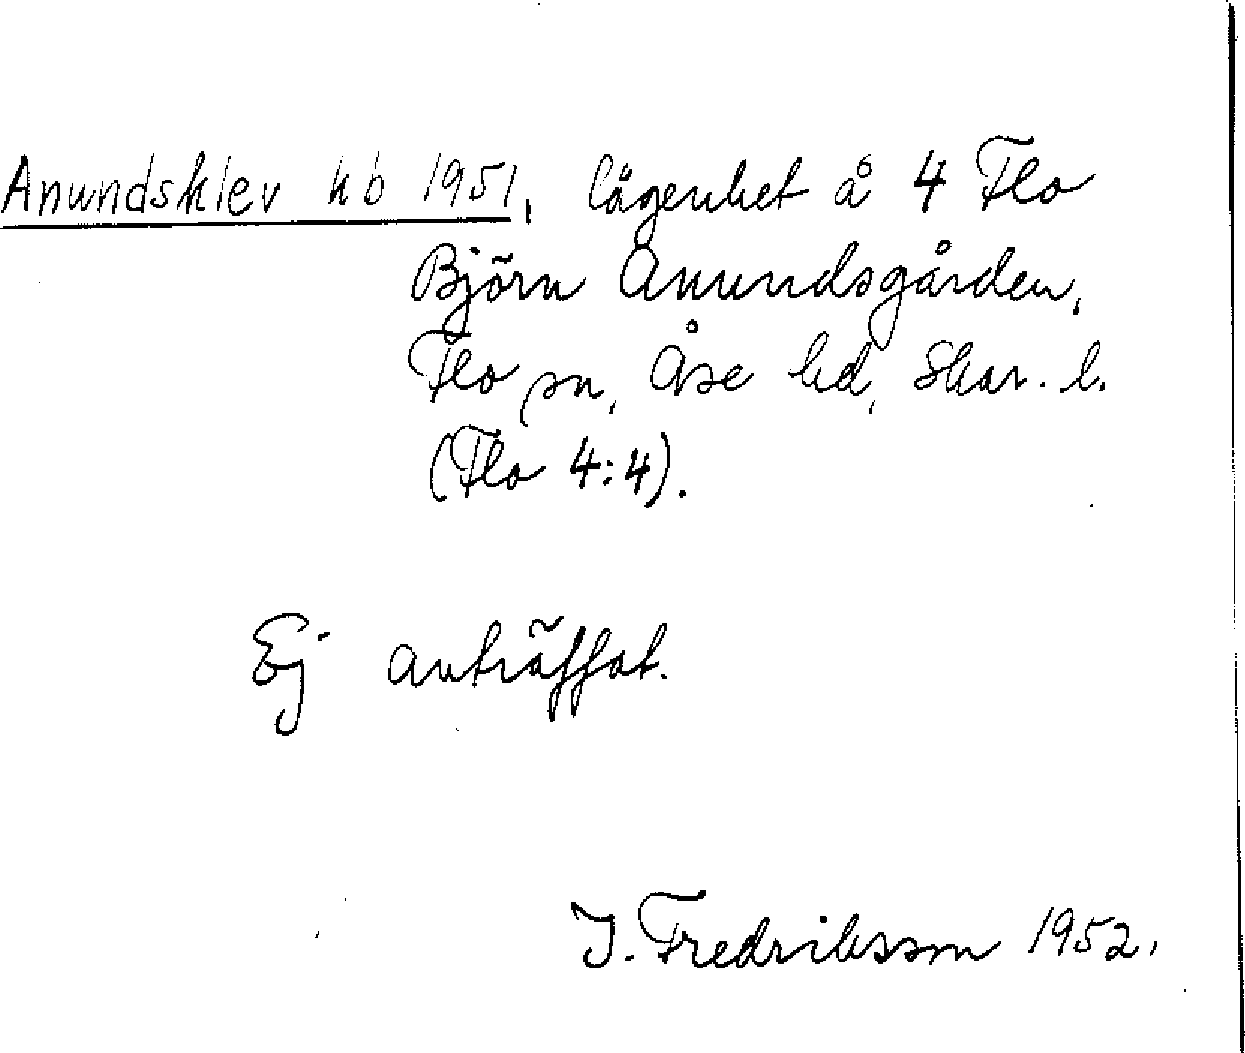 Anundsklev kb 1951, lägenhet å 4 Flo
Björn Anundsgården,
Flo sn, Åse hd, Skar. l.
(Flo 4:4).
Ej anträffat.
J. Fredriksson 1952.